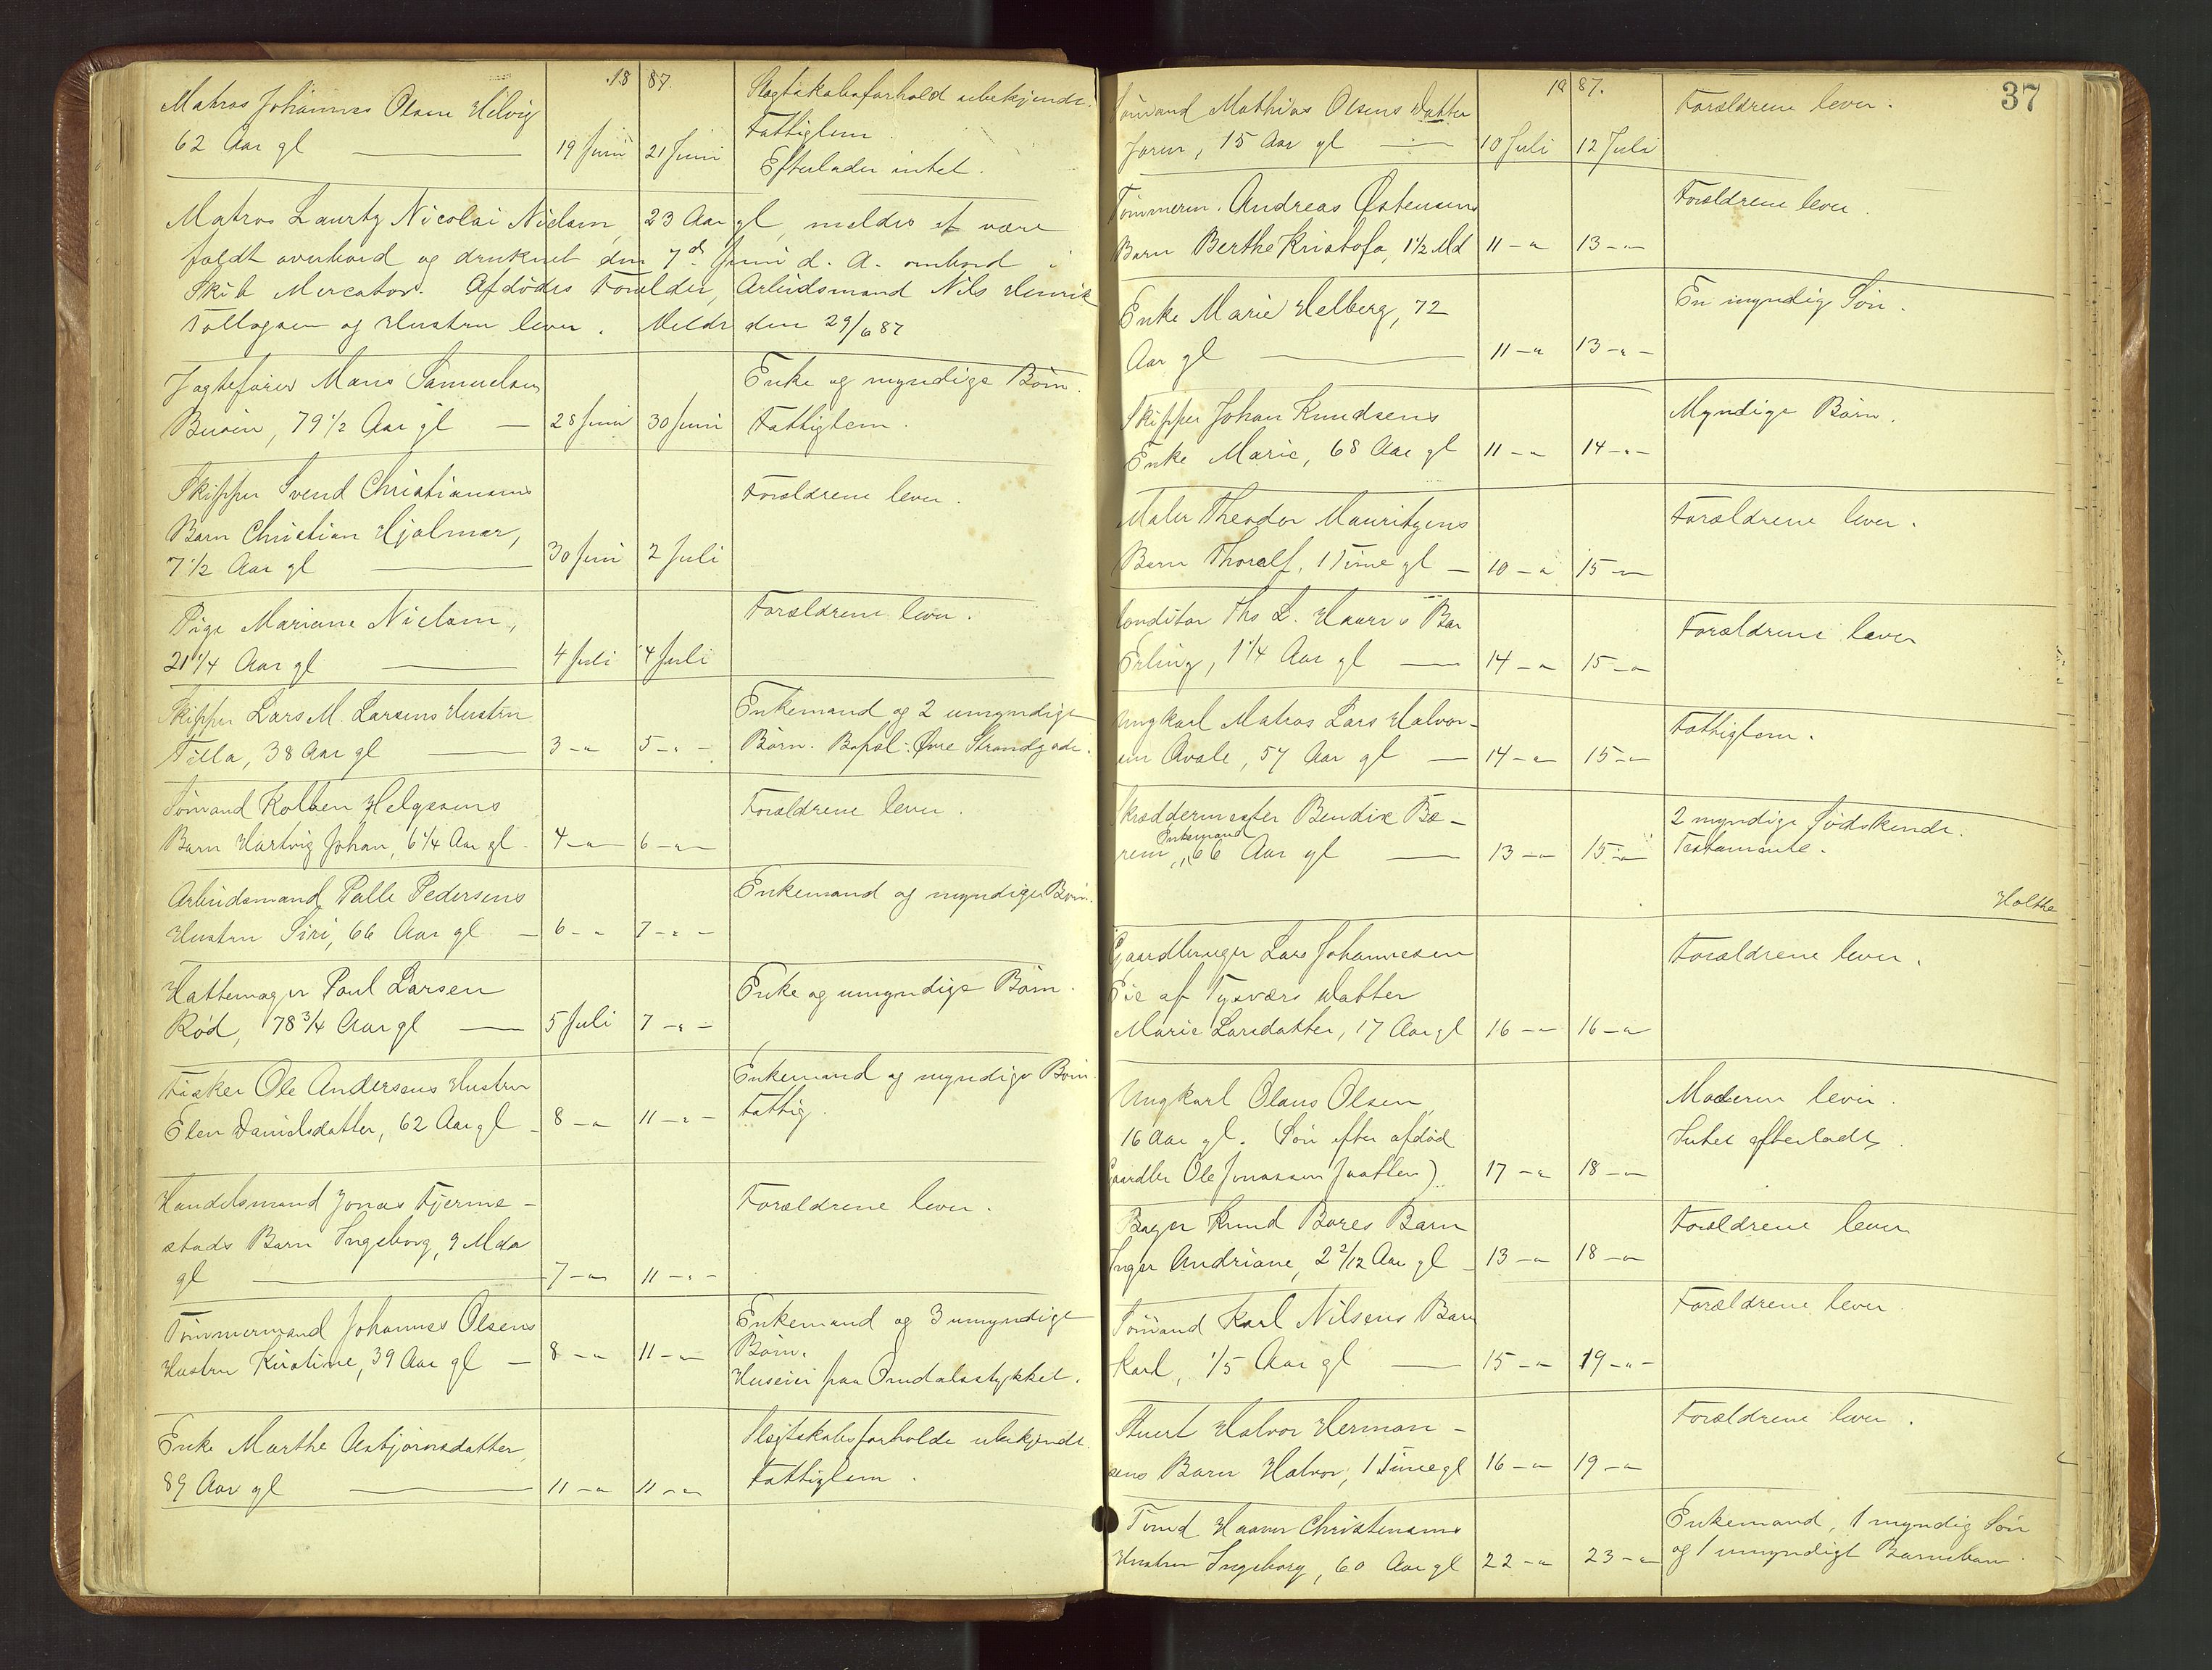 18 87.
Matros Johannes Olsen Helvig
62 Aar gl — 19 Juni 21 Juni
Slægtskabsforhold ubekjendt.
Fattiglem
Efterlader intet.
Matros Lauritz Nicolai Nielsen, 23 Aar gl, meldes at være
faldt overbord og druknet den 7d Juni d. A. ombord i
Skib Mercator. Afdødes Forælder, Arbeidsmand Nils Henrik
Tollagsen og Hustru lever. Meldt den 29/6 87
Jagtefører Mans Samuelsen
Buøen, 79 1/2 Aar gl — 28 Juni 30 Juni
Enke og myndige Børn.
Fattiglem.
Skipper Svend Christiansens
Barn Christian Hjalmar,
7 1/2 Aar gl — 30 Juni 2 Juli
Forældrene lever.
Pige Mariane Nielsen,
21 1/4 Aar gl — 4 Juli 4 Juli
Forældrene lever.
Skipper Lars M. Larsens Hustru
Tilla, 38 Aar gl — 3 — " 5 — " —
Enkemand og 2 umyndige
Børn. Bopæl: Øvre Strandgade.
Sømand Kolben Helgesens
Barn Hartvig Johan, 6 1/4 Aar gl. 4 — " 6 — "
Forældrene lever.
Arbeidsmand Palle Pedersens
Hustru Siri, 66 Aar gl — 6 — " 7 — " —
Enkemand og myndige Børn.
Hattemager Poul Larsen
Rød, 78 3/4 Aar gl — 5 Juli 7 — " —
Enke og umyndige Børn.
Fisker Ole Andersens Hustru
Elen Danielsdatter, 62 Aar gl — 8 — " 11 — " —
Enkemand og myndige Børn
Fattig.
Handelsmand Jonas Fjerme-
stads Barn Ingeborg, 9 Mdr
gl — 7 — " 11 — " —
Forældrene lever.
Tømmermand Johannes Olsens
Hustru Kirstine, 39 Aar gl — 8 — " 11 — "
Enkemand og 3 umyndige
Børn.
Huseier paa Omdalsstykket.
Enke Marthe Asbjørnsdatter,
89 Aar gl — 11 — " 11 — "
Slægtskabsforholde ubekjendt.
Fattiglem.
18 87.
37
Sømand Mathias Olsens Datter
Joren, 15 Aar gl — 10 Juli 12 Juli
Forældrene lever.
Tømmerm. Andreas Østensens
Barn Berthe Kristofa, 1 1/2 Md 11 — " 13 — "
Forældrene lever.
Enke Marie Helberg, 72
Aar gl — 11 — " 13 — " —
En myndig Søn.
Skipper Johan Knudsens
Enke Marie, 68 Aar gl 11 — " 14 — " —
Myndige Børn.
Maler Theodor Mauritzens
Barn Thoralf, 1 Time gl — 10 — " 15 — "
Forældrene lever.
Conditor Ths L. Haarrs Bar
Erling, 1 1/4 Aar gl — 14 — " 15 — "
Forældrene lever
Ungkarl Matros Lars Halvor-
sen Avale, 57 Aar gl — 14 — " 15 — "
Fattiglem.
Skræddermester Bendix Bæ-
Enkemand
rem, 66 Aar gl — 13 — " 15 — "
2 myndige Sødskende.
Testamente.
Holthe
Gaardbruger Lars Johannesen
Eie af Tysvær Datter
Marie Larsdatter, 17 Aar gl 16 — " 16 — "
Forældrene lever.
Ungkarl Olaus Olsen,
16 Aar gl. Søn efter afdød
Gaardbr Ole Jonassen Jaatten). 17 — " 18 — "
Moderen lever.
Intet efterladt.
Bager Knud Bores Barn
Inger Andriane, 2 2/12 Aar gl — 13 — " 18 — "
Forældrene lever
Sømand Karl Nilsens Barn
Karl, 1/5 Aar gl — 15 — " 19 — " —
Forældrene lever
Stuert Halvor Herman-
sens Barn Halvor, 1 Time gl 16 — " 19 — "
Forældrene lever.
Tømd Haaver Christensens
Hustru Ingeborg, 60 Aar gl 22 — " 23 — "
Enkemand, 1 myndig Søn
og 1 umyndigt Barnebarn.